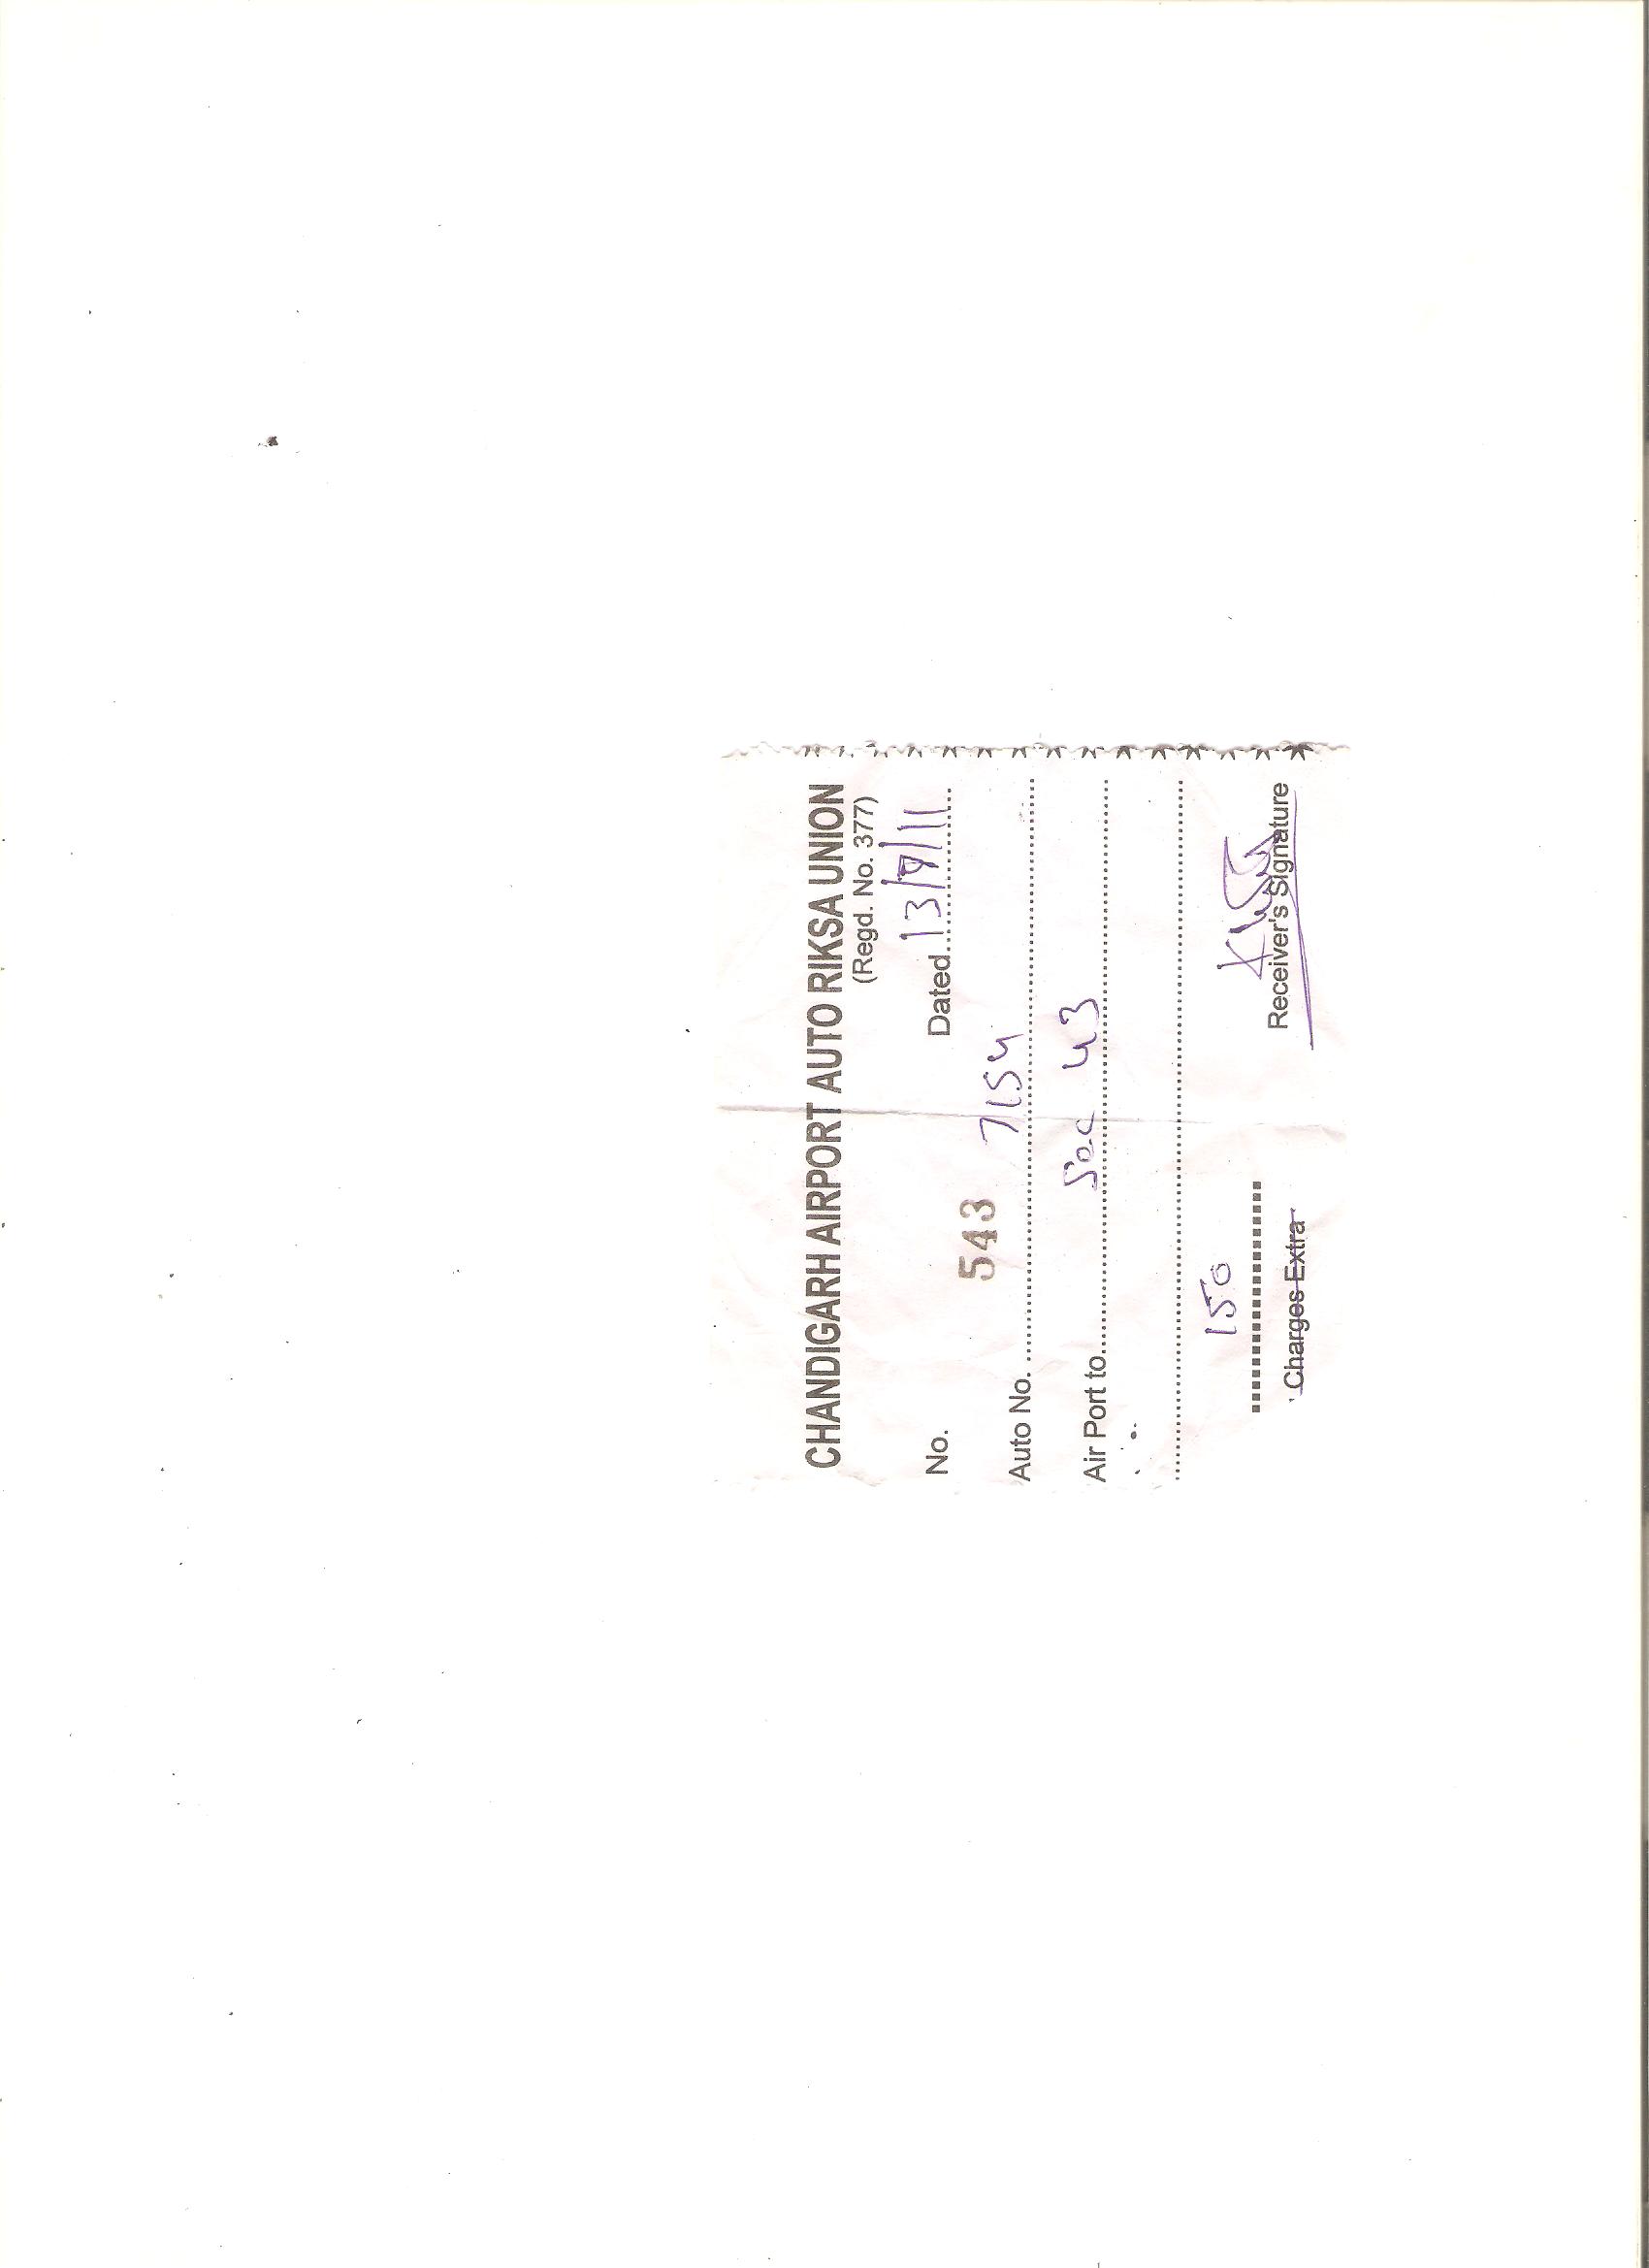 CHANDIGARH AIRPORT AUTO RIKSA UNION
(Regd. No. 377)
No. 543 Dated 13/9/11
Auto No. 7154
Air Port to Sec 43
150
Charges Extra
Receiver's Signature